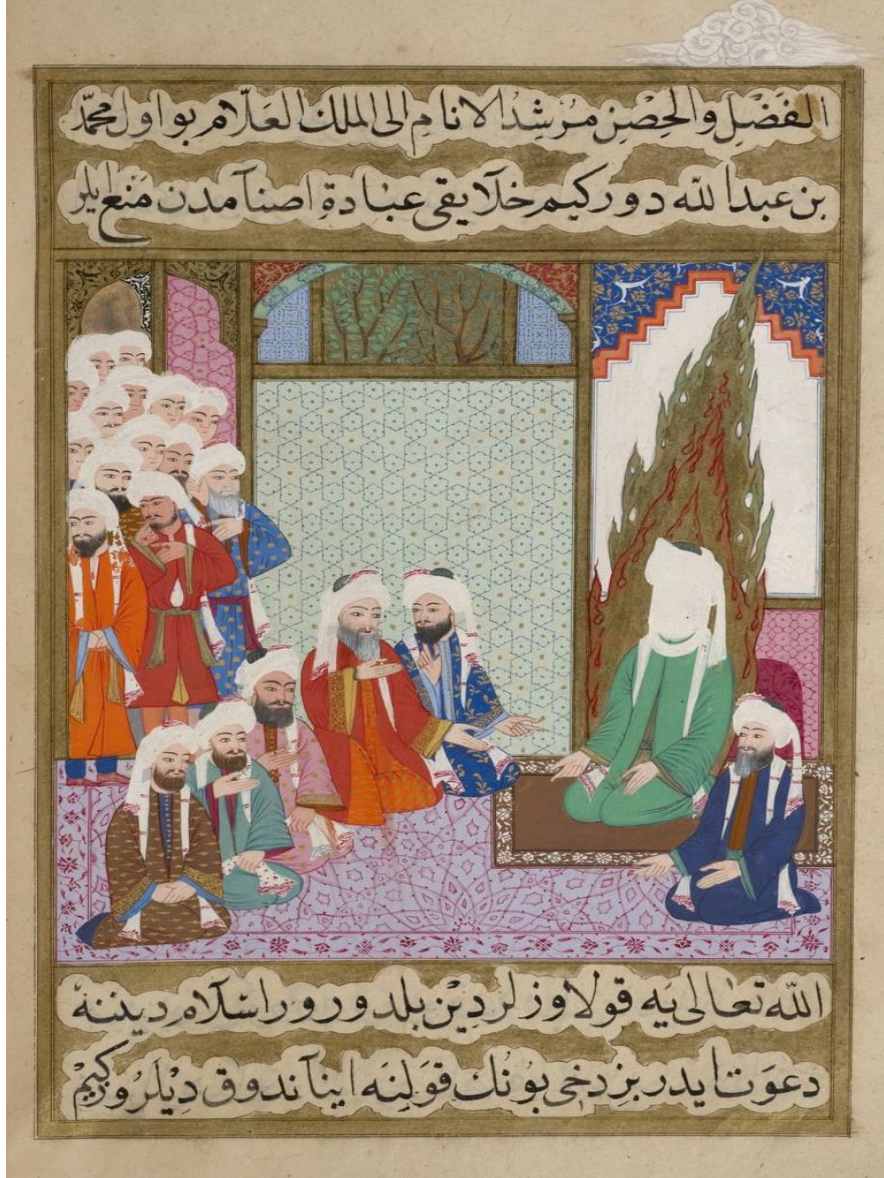 الفَضْلِ والحِصْنِ مُرْشِدُ الانامِ الى الملك العَلّامِ بو اول محمّد
بن عبد الله دور كيم خلايقى عبادة اصنامدن مَنع ايلر
الله تعالى يه قوللوزلر دِيْن بلدورور اسْلام ديننه
دعوَت ايدر بز دخى بوُنك قوَلِنَه ايناندوق دِيْلَرُ وكيم